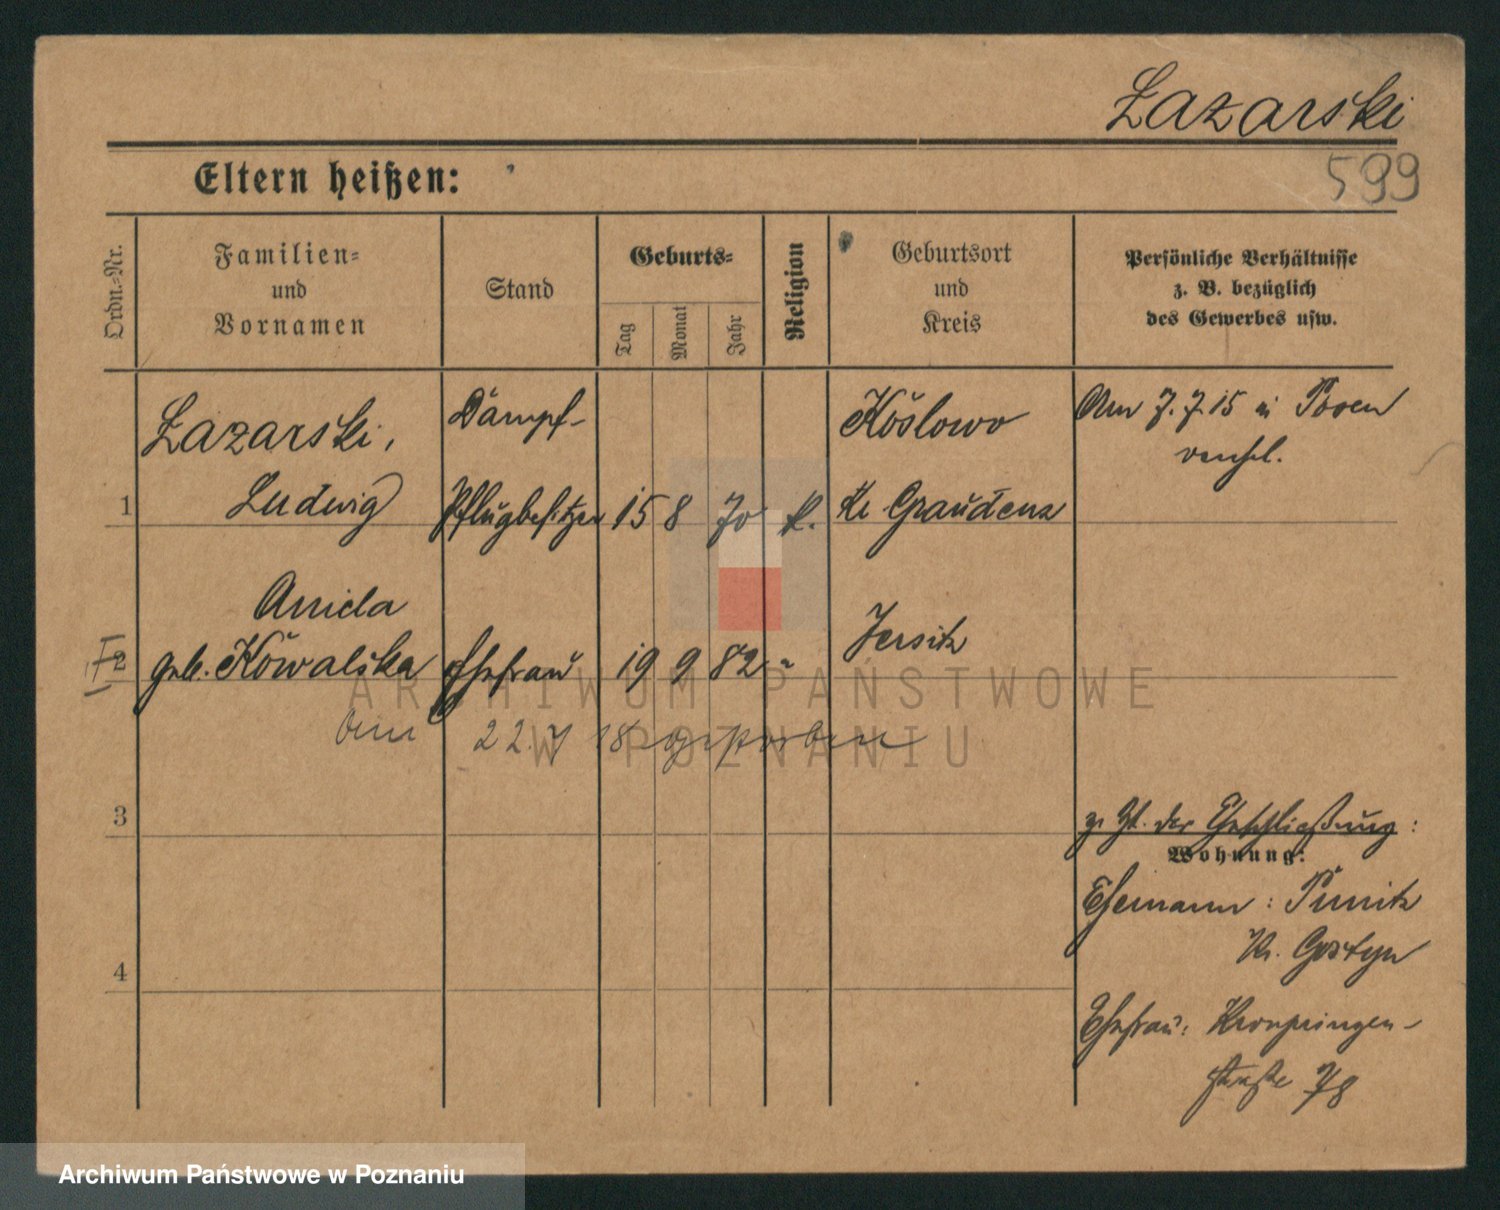 Lazarski
599
Eltern heißen:
Ordn.-Nr.
Familien-
und
Vornamen
Stand
Geburts-
Tag
Monat
Jahr
Religion
Geburtsort
und
Kreis
Persönliche Verhältnisse
z. B. bezüglich
des Gewerbes usw.
Lazarski,
Ludwig
Dampf-
Pflugbesitzer
1
15 8 70 k.
Koslowo
Kr Graudenz
Am 7.7.15 in Posen
verehel.
2
geb. Kowalska
Ehefrau
19 9 82
Jersitz
22.7 18 gestorben
3
z. Zt. der Eheschließung:
Wohnung:
Ehemann: Punitz
Kr. Gostyn
4
Ehefrau: Kronprinzen-
straße 78
ARCHIWUM PAŃSTWOWE
W POZNANIU
Archiwum Państwowe w Poznaniu